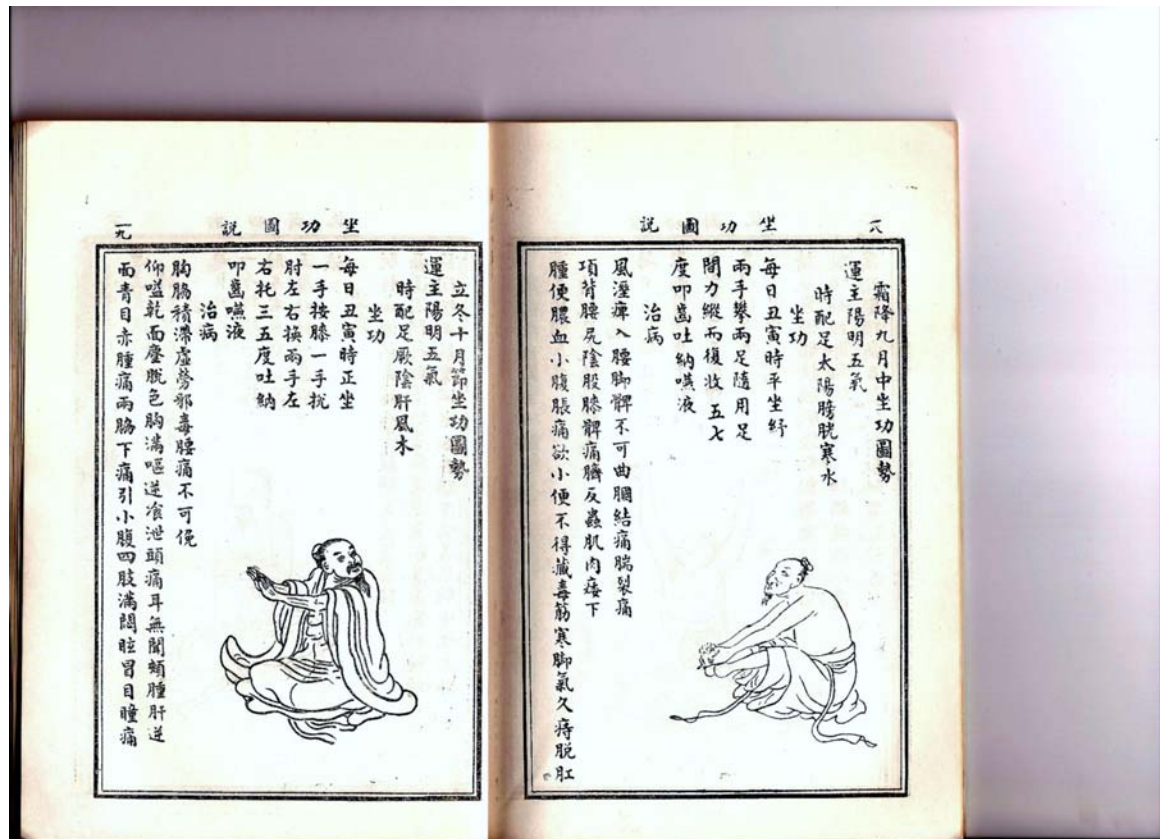 坐功圖說
一八
霜降九月中坐功圖勢
運主陽明五氣
時配足太陽膀胱寒水
坐功
每日丑寅時平坐紓
兩手攀兩足隨用足
間力縱而復收五七
度叩齒吐納嚥液
治病
風溼痺入腰脚髀不可曲膕結痛腨裂痛
項背腰尻陰股膝髀痛臍反蟲肌肉痿下
腫便膿血小腹脹痛欲小便不得藏毒筋寒脚氣久痔脫肛
坐功圖說
一九
立冬十月節坐功圖勢
運主陽明五氣
時配足厥陰肝風木
坐功
每日丑寅時正坐
一手按膝一手挽
肘左右換兩手左
右托三五度吐納
叩齒嚥液
治病
胸脇積滯虛勞邪毒腰痛不可俛
仰嗌乾面塵脫色胸滿嘔逆飧泄頭痛耳無聞頰腫肝逆
面青目赤腫痛兩脇下痛引小腹四肢滿悶眩冒目瞳痛